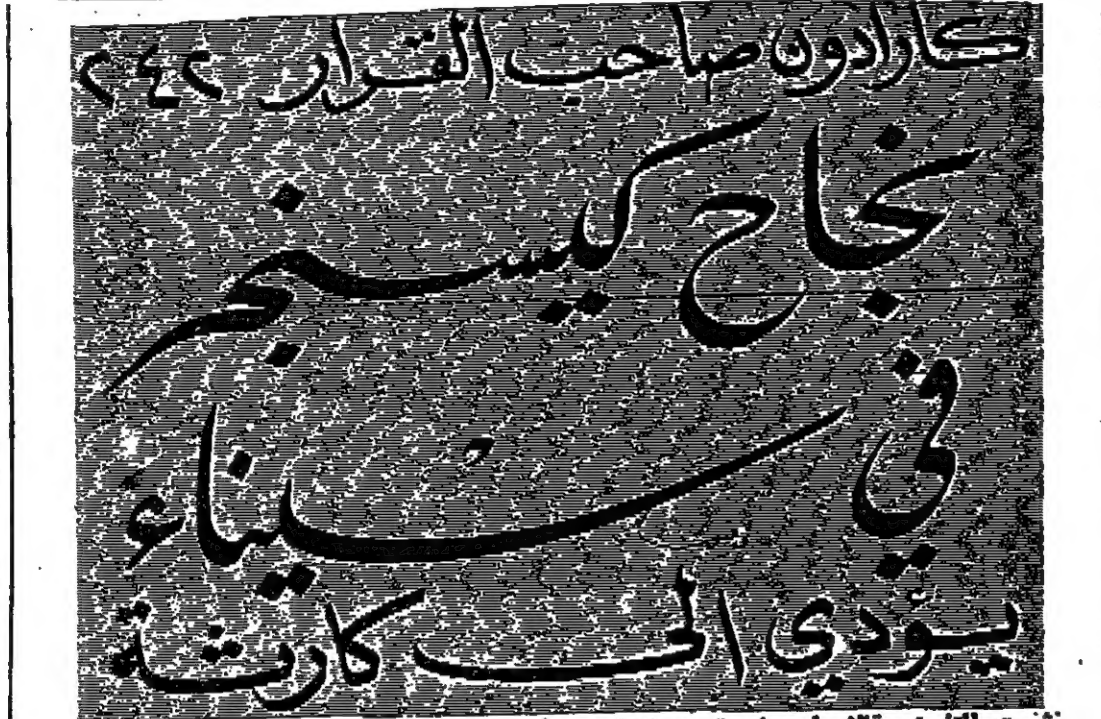 كارادون صاحب القرار ٢٤٢
نجاح كيسنجر
في سيناء
يؤدي الى كارثة